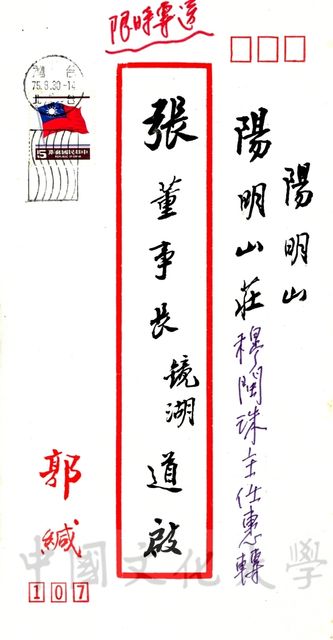 限時專送
陽明山
陽明山莊穆閩珠主任惠轉
張董事長鏡湖道啟
郭緘
107
台北
75.8.30-14
中華民國郵票
REPUBLIC OF CHINA
5
中國文化大學